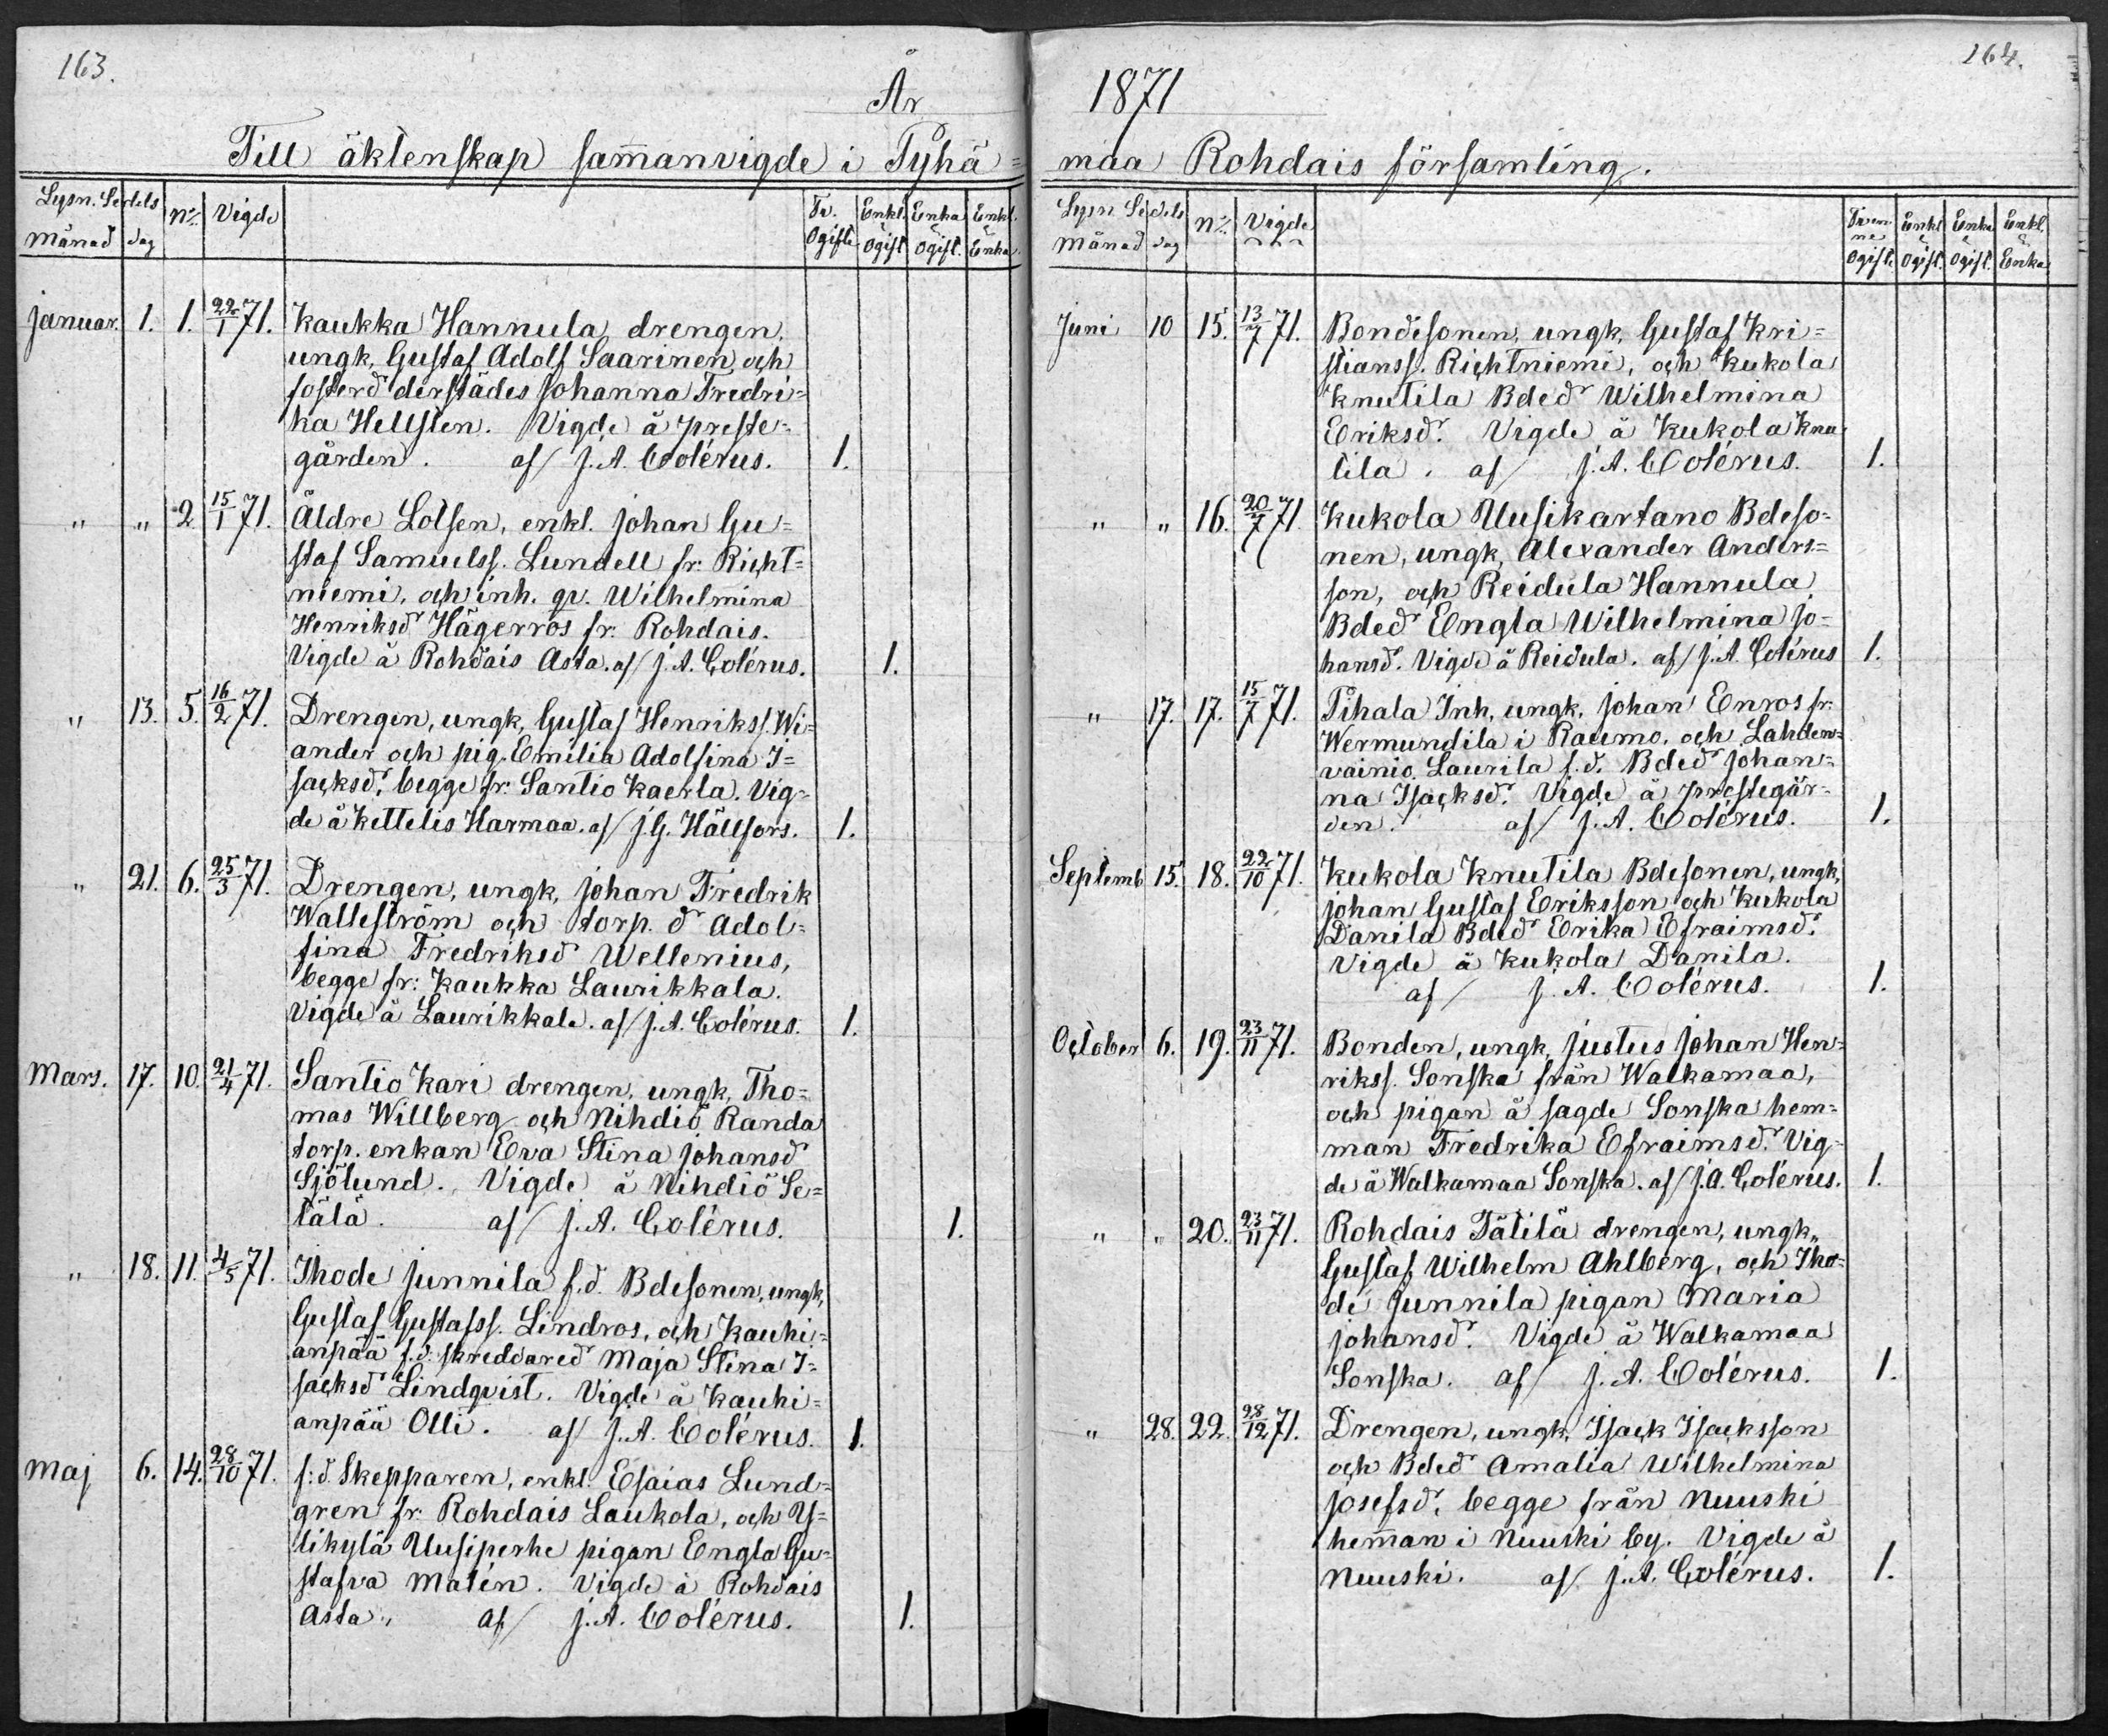 163.
År
Till äktenskap sam̄anvigde i Pyhä=
Lysn. Sedels
månad dag
No.
Vigde
Tv. Ogifte
Enkl. & Ogift.
Enka & Ogift.
Enkl. & Enka
januar. 1. 1. 22/1 71. Kaukka Hannula drengen,
ungk, Gustaf Adolf Saarinen, och
fosterd derstädes Johanna Fredri=
ka Hellsten. Vigde å preste=
gården. af/ J. A. Colérus. 1.
" " 2 15/1 71. Äldre Lotsen, enkl. Johan Gu=
staf Samuelss. Lundell fr: Richt=
niemi, och inh. qv. Wilhelmina
Henriksd Hägerros fr: Rohdais.
Vigde å Rohdais Asta. af/ J. A. Colérus. 1.
" 13. 5. 16/2 71. Drengen, ungk, Gustaf Henrikss. Wi=
ander och pig. Emilia Adolfina I=
sacksd. begge fr: Santio Kaerla. Vig=
de å Kettelis Harmaa. af/ J. G. Hällfors. 1.
" 21. 6. 25/3 71. Drengen, ungk, Johan Fredrik
Walleström och torp. d Adol=
fina Fredriksd Wellenius,
begge fr: Kaukka Laurikkala.
Vigde å Laurikkala. af/ J. A. Colérus. 1.
Mars. 17. 10. 21/4 71. Santio Kari drengen, ungk, Tho=
mas Willberg och Nihdiö Randa
torp. enkan Eva Stina Johansd
Sjölund. Vigde å Nihdiö Se=
tälä. af/ J. A. Colérus. 1.
" 18. 11. 4/5 71. Ihode Junnila f.d. Bdesonen, ungk,
Gustaf Gustafss. Lindros, och Kauhi=
anpää f.d. skreddared Maja Stina I=
sacksd Lindqvist. Vigde å Kauhi=
anpää Olli. af/ J. A. Colérus. 1.
Maj 6. 14. 28/10 71. f:d Skepparen, enkl. Esaias Lund=
gren fr: Rohdais Laukola, och Y=
likylä Uusiperhe pigan Engla Gu=
stafva Malén. Vigde å Rohdais
Asta. af/ J. A. Colérus. 1.
164.
1871
maa Rohdais församling.
Lysn. Sedels
månad dag
No.
Vigde
Tvenne Ogifte
Enkl & Ogift.
Enka & Ogift.
Enkl. & Enka
Juni 10 15. 13/7 71. Bondesonen, ungk, Gustaf Kri=
stianss. Richtniemi, och Kukola
Knutila Bded Wilhelmina
Eriksd. Vigde å Kukola Knu
tila. af/ J. A. Colérus. 1.
" " 16. 20/7 71. Kukola Uusikartano Bdeso=
nen, ungk, Alexander Anders=
son, och Reidula Hannula
Bded Engla Wilhelmina Jo=
hansd. Vigde å Reidula. af/ J. A. Colérus 1.
" 17. 17. 15/7 71. Pihala Inh, ungk. Johan Enros fr:
Wermundila i Raumo, och Lahden=
vainio Laurila f.d. Bded Johan=
na Isacksd. Vigde å prestegår=
den. af/ J. A. Colérus. 1.
Septemb 15. 18. 22/10 71. Kukola Knutila Bdesonen, ungk,
Johan Gustaf Eriksson och Kukola
Danila Bded Erika Efraimsd.
Vigde å Kukola Danila.
af/ J. A. Colérus. 1.
October 6. 19. 23/11 71. Bonden, ungk, Justus Johan Hen=
rikss. Sonska från Walkamaa,
och pigan å sagde Sonska hem=
man Fredrika Efraimsd. Vig=
de å Walkamaa Sonska. af/ J. A. Colérus. 1.
" " 20. 23/11 71. Rohdais Tätilä drengen, ungk,
Gustaf Wilhelm Ahlberg, och Iho=
de Junnila pigan Maria
Johansd. Vigde å Walkamaa
Sonska. af/ J. A. Colérus. 1.
" 28. 22. 28/12 71. Drengen, ungk, Isack Isacksson
och Bded Amalia Wilhelmina
Josefsd, begge från Nuuski
hem̄an i Nuuski by. Vigde å
Nuuski. af/ J. A. Colérus. 1.